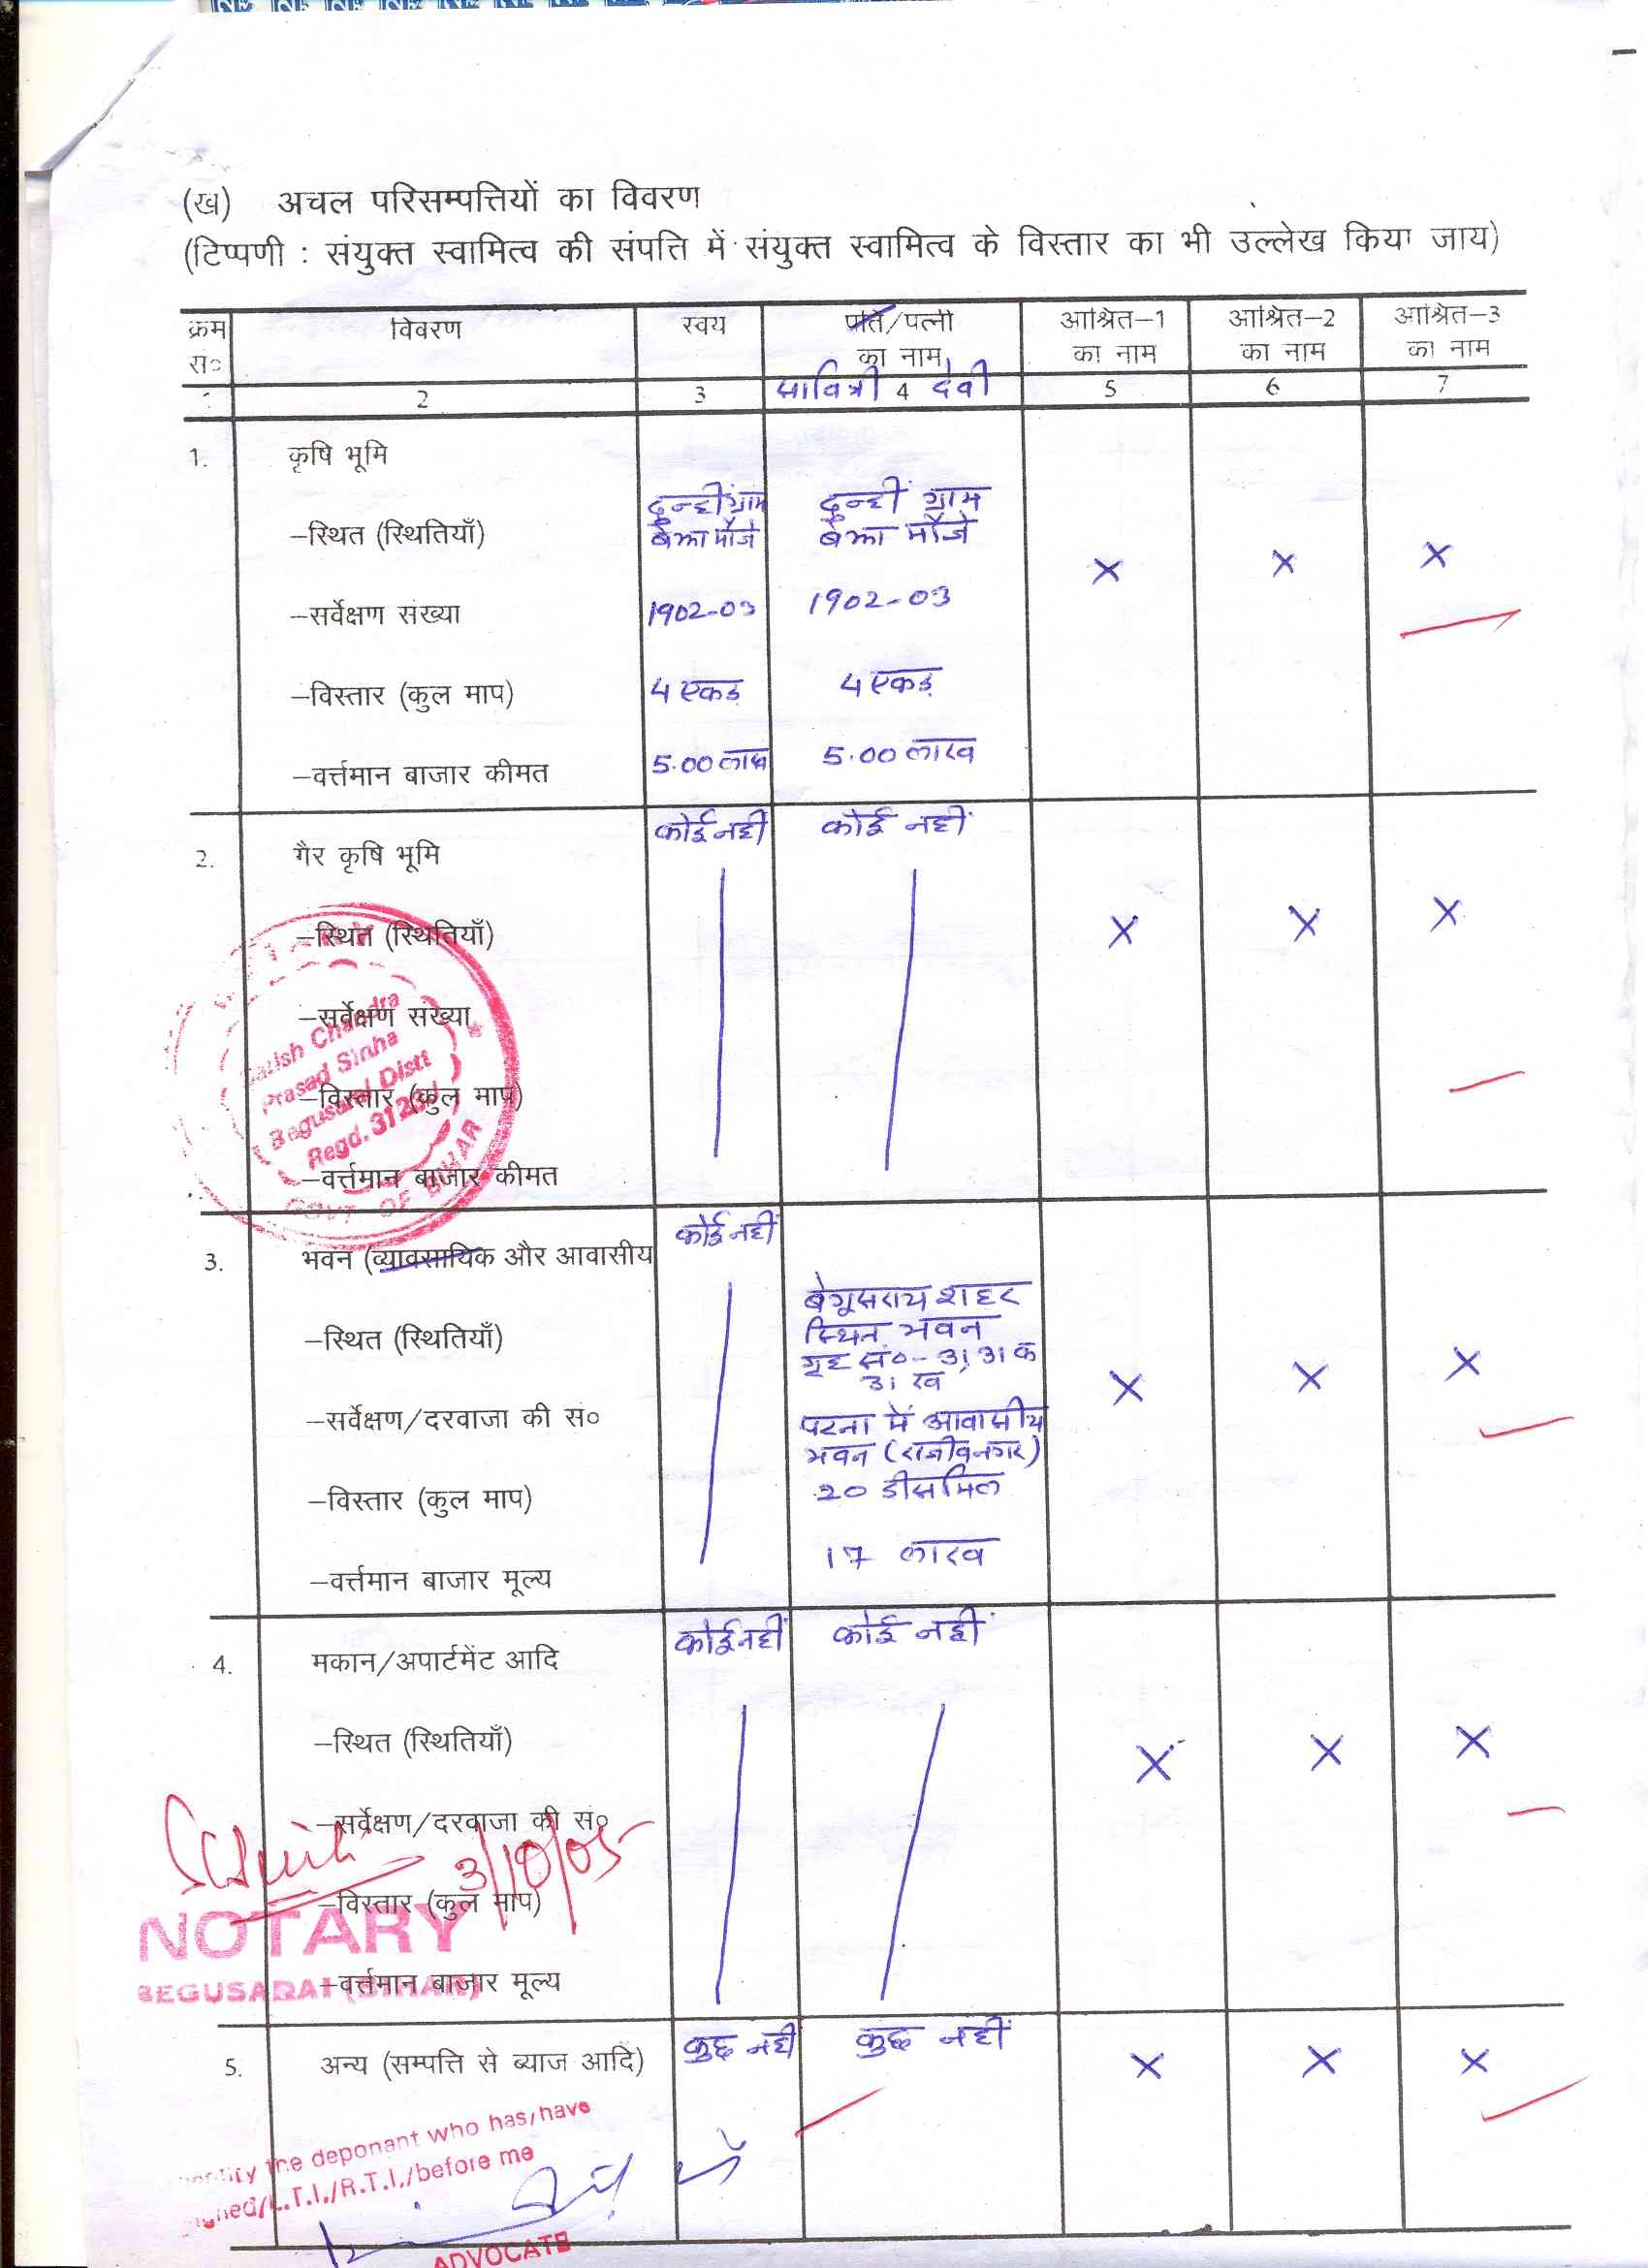 (ख) अचल परिसम्पत्तियों का विवरण
(टिप्पणी : संयुक्त स्वामित्व की संपत्ति में संयुक्त स्वामित्व के विस्तार का भी उल्लेख किया जाय)
क्रम सं० विवरण स्वयं पति/पत्नी का नाम आश्रित-1 का नाम आश्रित-2 का नाम आश्रित-3 का नाम
सावित्री देवी
2 3 4 5 6 7
1. कृषि भूमि
-स्थित (स्थितियाँ) दुन्ही ग्राम दुन्ही ग्राम
बेझा मौजे बेझा मौजे
× × ×
-सर्वेक्षण संख्या 1902-03 1902-03
-विस्तार (कुल माप) 4 एकड़ 4 एकड़
-वर्त्तमान बाजार कीमत 5.00 लाख 5.00 लाख
2. गैर कृषि भूमि कोई नहीं कोई नहीं
-स्थित (स्थितियाँ) × × ×
-सर्वेक्षण संख्या
-विस्तार (कुल माप)
-वर्त्तमान बाजार कीमत
Satish Chandra
Prasad Sinha
Begusarai Distt
Regd.
GOVT OF BIHAR
3. भवन (व्यावसायिक और आवासीय कोई नहीं
-स्थित (स्थितियाँ) बेगूसराय शहर
स्थित भवन
गृह सं०- 31, 31 क
31 ख
× × ×
-सर्वेक्षण/दरवाजा की सं० पटना में आवासीय
भवन (राजीवनगर)
-विस्तार (कुल माप) 20 डीसमिल
-वर्त्तमान बाजार मूल्य 17 लाख
4. मकान/अपार्टमेंट आदि कोई नहीं कोई नहीं
-स्थित (स्थितियाँ) × × ×
-सर्वेक्षण/दरवाजा की सं०
3/10/05
-विस्तार (कुल माप)
NOTARY
-वर्त्तमान बाजार मूल्य
BEGUSARAI (BIHAR)
5. अन्य (सम्पत्ति से ब्याज आदि) कुछ नहीं कुछ नहीं × × ×
the deponant who has/have
L.T.I./R.T.I./before me
ADVOCATE